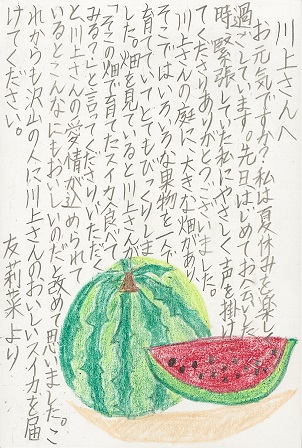 川上さんへ
お元気ですか？私は夏休みを楽しく
過ごしています。先日はじめてお会いした
時、緊張していた私にやさしく声を掛け
てくださりありがとうございました。
川上さんの庭に、大きな畑があり、
そこではいろいろな果物を一人で
育てていてとてもびっくりしま
した。畑を見ていると川上さんが
「そこの畑で育てたスイカ、食べて
みる？」と言ってくださりいただく
と、川上さんの愛情が込められて
いるとこんなにもおいしいのだと改めて思いました。こ
れからも沢山の人に川上さんのおいしいスイカを届
けてください。
友莉菜より